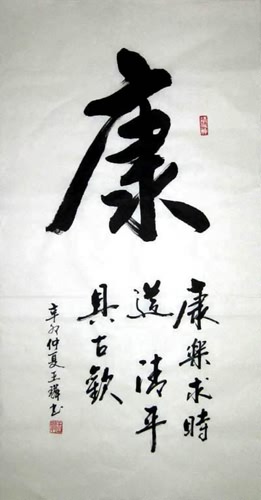 康
康樂求時
道清平
具古歡
辛卯仲夏王祥書